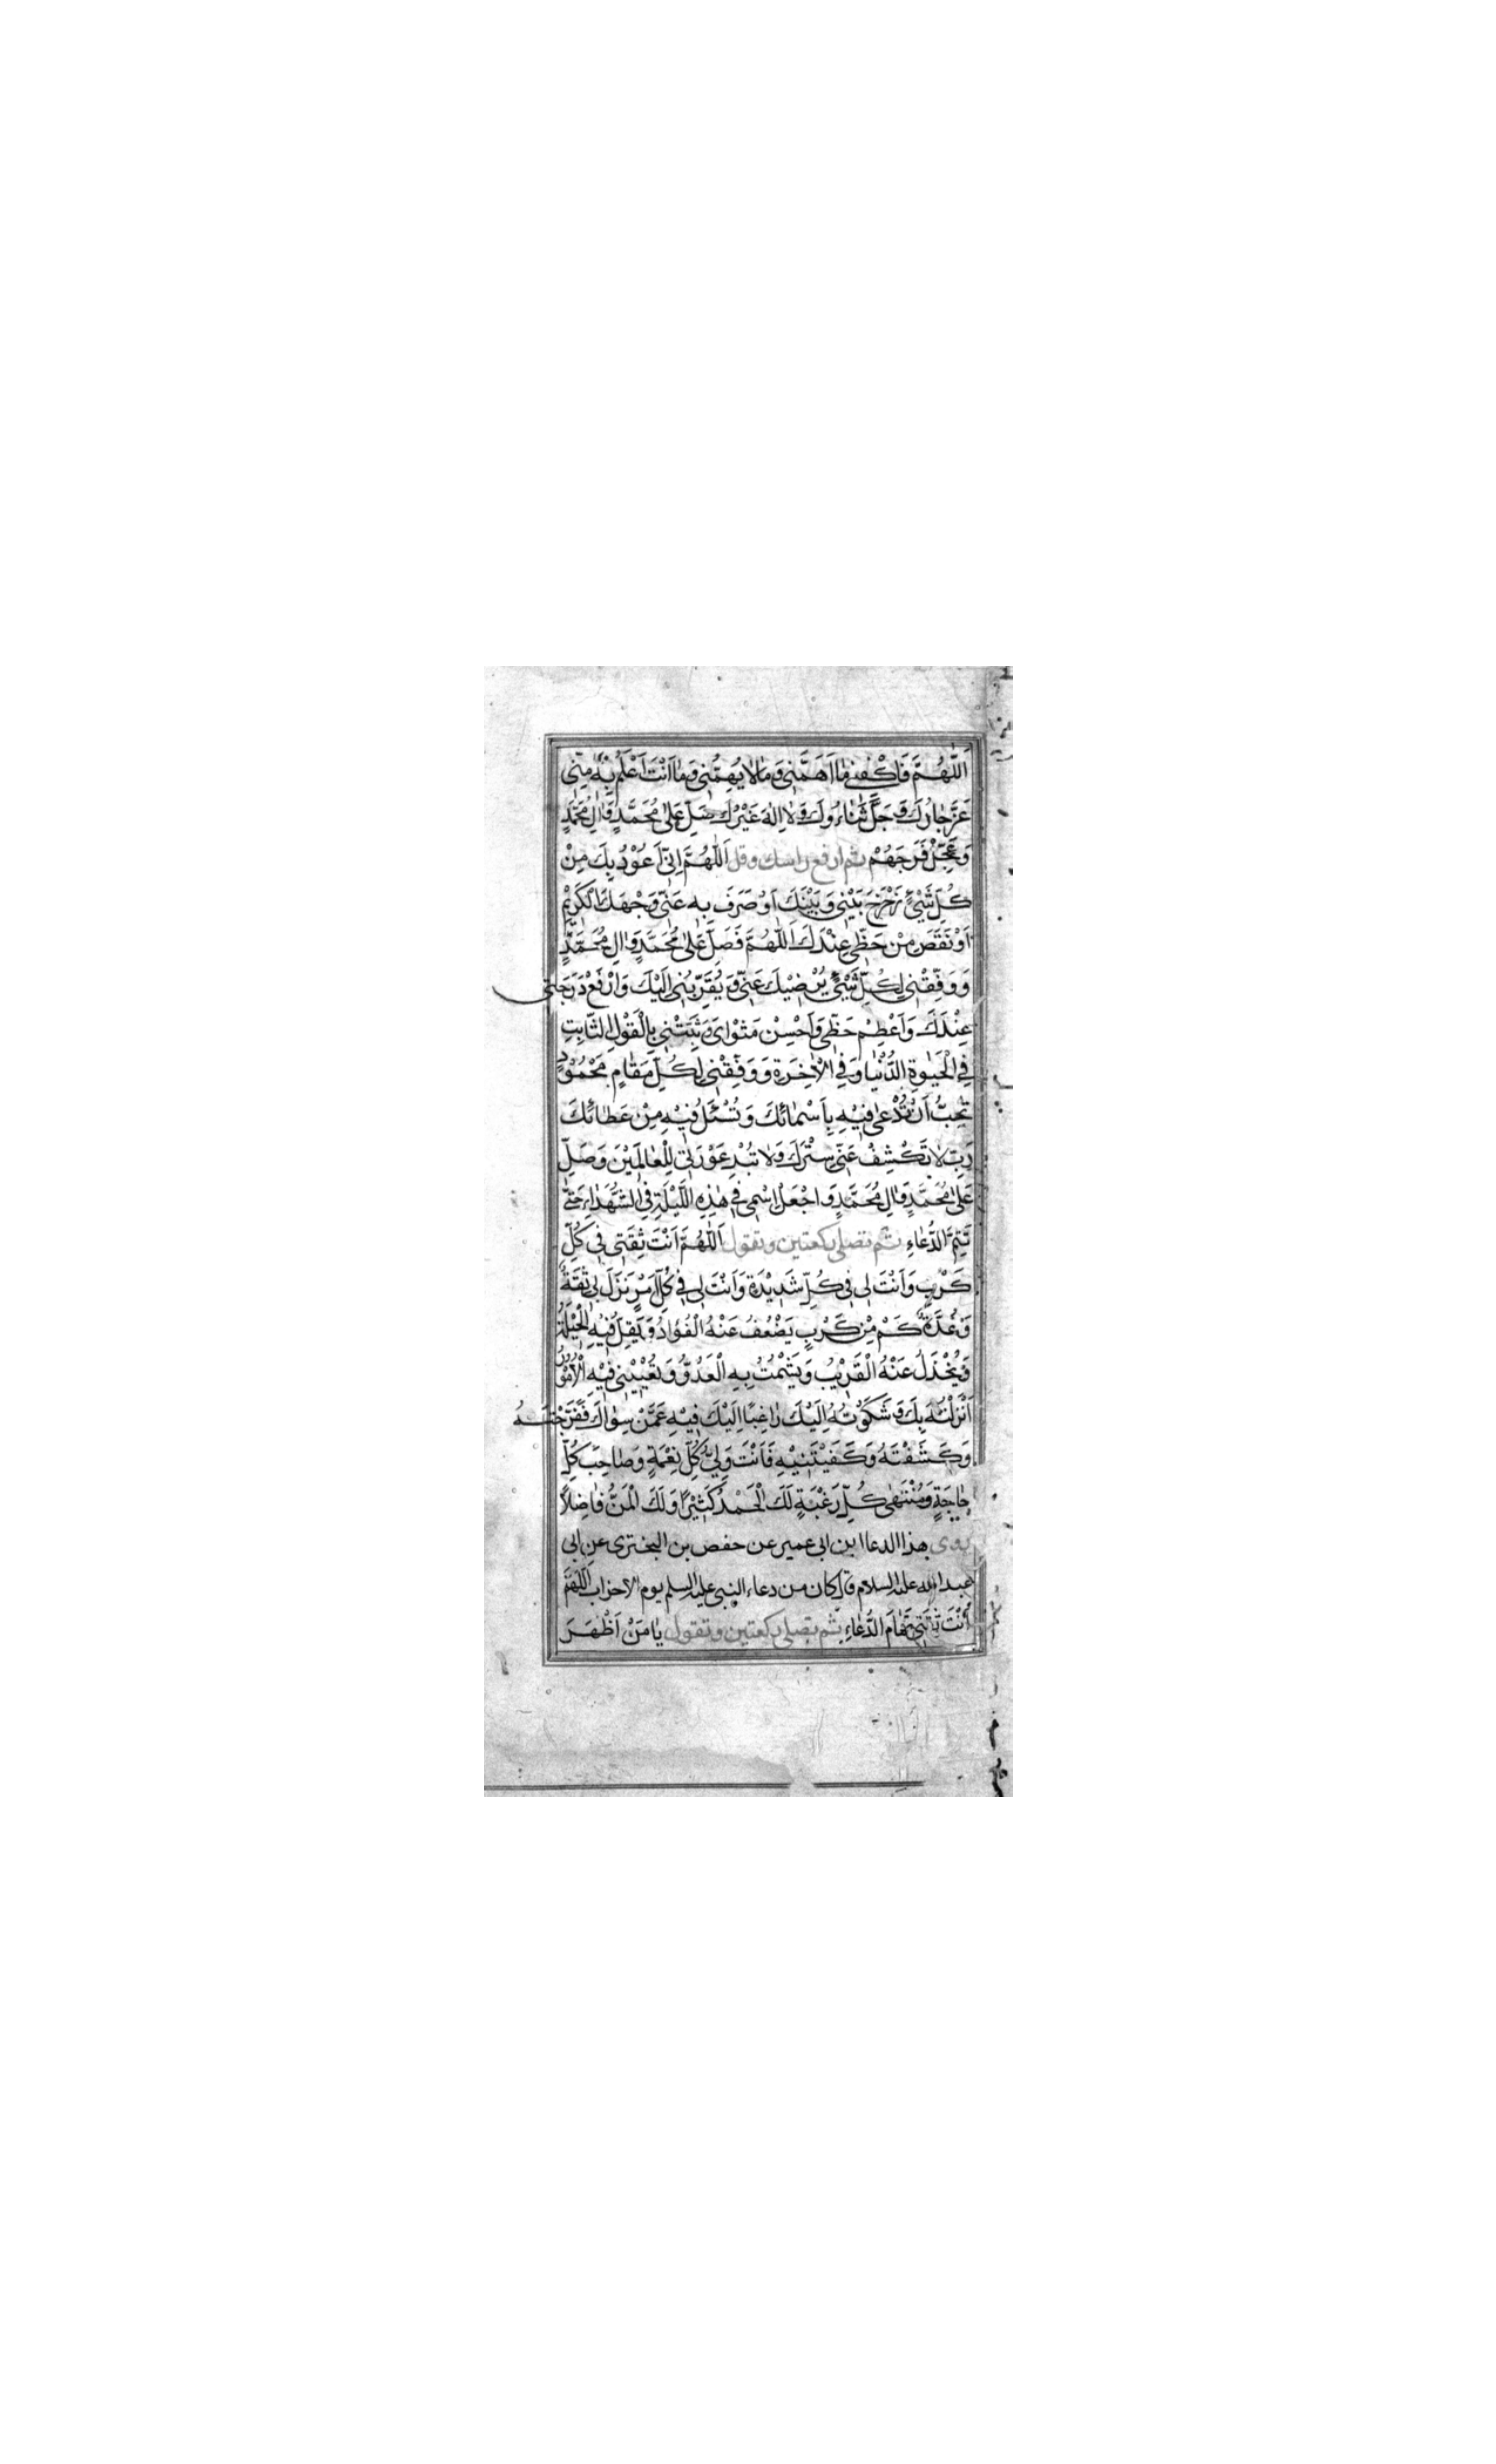 اَللّٰهُمَّ فَاكْفِنِي مٰا اَهَمَّنِي وَمٰا لٰا يُهِمُّنِي وَمٰا اَنْتَ اَعْلَمُ بِهٖ مِنِّي
عَزَّ جٰارُكَ وَجَلَّ ثَنٰاءُوكَ وَلٰا اِلٰهَ غَيْرُكَ صَلِّ عَلٰى مُحَمَّدٍ وَاٰلِ مُحَمَّدٍ
وَعَجِّلْ فَرَجَهُمْ ثم ارفع راسك وقل اَللّٰهُمَّ اِنِّي اَعُوْذُ بِكَ مِنْ
كُلِّ شَيْءٍ زَحْزَحَ بَيْنِي وَبَيْنَكَ اَوْ صَرَفَ بِهِ عَنِّي وَجْهَكَ الْكَرِيْمَ
اَوْ نَقَصَ مِنْ حَظِّي عِنْدَكَ اَللّٰهُمَّ فَصَلِّ عَلٰى مُحَمَّدٍ وَاٰلِ مُحَمَّدٍ
وَوَفِّقْنِي لِكُلِّ شَيْءٍ يُرْضِيْكَ عَنِّي وَيُقَرِّبُنِي اِلَيْكَ وَارْفَعْ دَرَجَتِي
عِنْدَكَ وَاَعْظِمْ حَظِّي وَاَحْسِنْ مَثْوٰايَ وَثَبِّتْنِي بِالْقَوْلِ الثّٰابِتِ
فِي الْحَيٰوةِ الدُّنْيٰا وَفِي الْاٰخِرَةِ وَوَفِّقْنِي لِكُلِّ مَقٰامٍ مَحْمُوْدٍ
تُحِبُّ اَنْ تُدْعٰى فِيْهِ بِاَسْمٰائِكَ وَتُسْئَلُ فِيْهِ مِنْ عَطٰائِكَ
رَبِّ لٰا تَكْشِفْ عَنِّي سِتْرَكَ وَلٰا تُبْدِ عَوْرَتِي لِلْعٰالَمِيْنَ وَصَلِّ
عَلٰى مُحَمَّدٍ وَاٰلِ مُحَمَّدٍ وَاجْعَلْ اِسْمِي فِي هٰذِهِ اللَّيْلَةِ فِي الشُّهَدٰاءِ حَتّٰى
تَتِمَّ الدُّعٰاءِ ثم تصلي ركعتين وتقول اَللّٰهُمَّ اَنْتَ ثِقَتِي فِي كُلِّ
كَرْبٍ وَاَنْتَ لِي فِي كُلِّ شَدِيْدَةٍ وَاَنْتَ لِي فِي كُلِّ اَمْرٍ نَزَلَ بِي ثِقَةٌ
وَعُدَّةٌ كَمْ مِنْ كَرْبٍ يَضْعُفُ عَنْهُ الْفُؤٰادُ وَيَقِلُّ فِيْهِ الْحِيْلَةُ
وَيُخْذَلُ عَنْهُ الْقَرِيْبُ وَيَشْمُتُ بِهِ الْعَدُوُّ وَتُعْيِيْنِي فِيْهِ الْاُمُوْرُ
اَنْزَلْتُهُ بِكَ وَشَكَوْتُهُ اِلَيْكَ رٰاغِبًا اِلَيْكَ فِيْهِ عَمَّنْ سِوٰاكَ فَفَرَّجْتَهُ
وَكَشَفْتَهُ وَكَفَيْتَنِيْهِ فَاَنْتَ وَلِيُّ كُلِّ نِعْمَةٍ وَصٰاحِبُ كُلِّ
حٰاجَةٍ وَمُنْتَهٰى كُلِّ رَغْبَةٍ لَكَ الْحَمْدُ كَثِيْرًا وَلَكَ الْمَنُّ فٰاضِلًا
روى هذا الدعا ابن ابى عمير عن حفص بن البخترى عن ابى
عبد الله عليه السلام قال كان من دعاء النبى عليه السلم يوم الاحزاب اَللّٰهُمَّ
اَنْتَ ثِقَتِي تَمٰامَ الدُّعٰاءِ ثم تصلي ركعتين وتقول يٰا مَنْ اَظْهَرَ